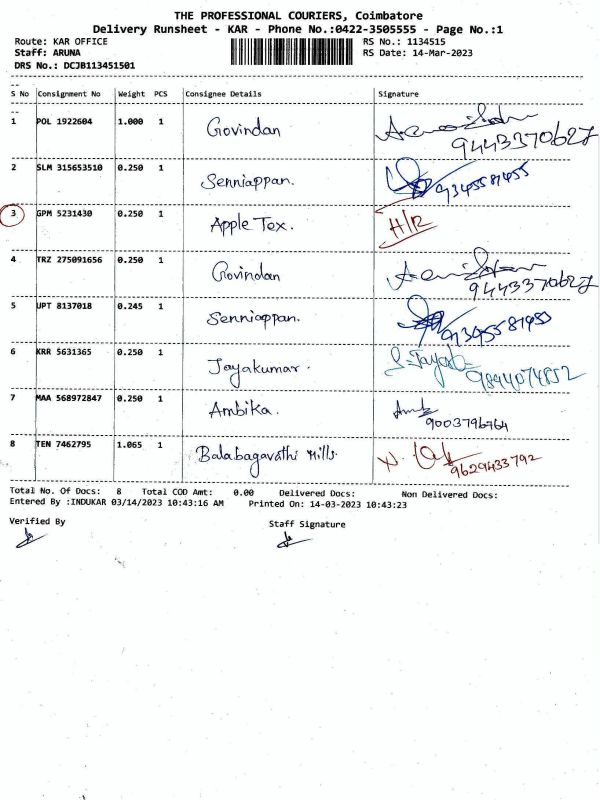 THE PROFESSIONAL COURIERS, Coimbatore
Delivery Runsheet - KAR - Phone No.:0422-3505555 - Page No.:1
Route: KAR OFFICE RS No.: 1134515
Staff: ARUNA RS Date: 14-Mar-2023
DRS No.: DCJB113451501
S No Consignment No Weight PCS Consignee Details Signature
1 POL 1922604 1.000 1 Govindan 9443370627
2 SLM 315653510 0.250 1 Senniappan. 9345587455
3 GPM 5231430 0.250 1 Apple Tex. H/R
4 TRZ 275091656 0.250 1 Govindan 9443370627
5 UPT 8137018 0.245 1 Senniappan.
6 KRR 5631365 0.250 1 Jayakumar. 9894074852
7 MAA 568972847 0.250 1 Ambika. 9003796764
8 TEN 7462795 1.065 1 Balabagavathi Mills. 9629433792
Total No. Of Docs: 8 Total COD Amt: 0.00 Delivered Docs: Non Delivered Docs:
Entered By :INDUKAR 03/14/2023 10:43:16 AM Printed On: 14-03-2023 10:43:23
Verified By Staff Signature